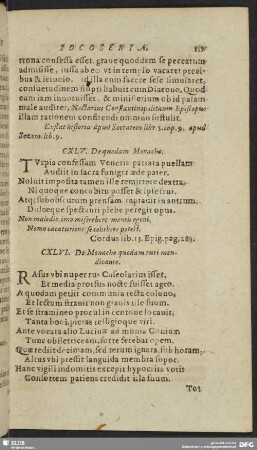 IOCOSERIA.
trona confessa esset, graue quoddam se peccatum
admisisse, iussa ab eo vt in templo vacaret preci-
bus & ieiunio. illa cum sacere sese simularet,
consuetudinem stupri habuit cum Diacono. Quod
cum iam innotuisset, & ministerium ob id palam
male audiret, Nectarius Constantinopolitanus Episcopus
illam rationem consitendi omnino sustulit.
Extat historia apud Socratem libr. 5. cap. 9. apud
Sozom. lib. 9.
CXLV. De quodam Monacho.
TVrpia confessam Veneris patrata puellam
Audiit in sacra sunigeræde pater.
Noluit imposita tamen ille remittere dextra,
Ni quoque concubitu posset & ipse frui.
Atque obscuturum prensam raptauit in antrum,
Dulceque spectanti plebe peregit opus.
Non maledic, imo misereberc mentis egeni,
Nemo cacaturiens se cohibere potest.
Cordus lib. 13. Epig. pag. 289.
CXLVI. De Monacho quodam ruri men-
dicante.
RAsus vbi nuper rus Caseolatim isset,
Et media prorsus nocte fuisset agro.
A quodam petiit communia tecta colono,
Et lectum strauit non grauis ille suum.
Et se stramineo procul in centone locauit,
Tanta boni pietas relligioque viri.
Ante vocata alio Lucinæ ad munia Coniunx
Tunc obstetricem, sorte ferebat opem.
Quæ rediit decimam, sed rerum ignara, sub horam,
Altus vbi pressit languida membra sopor.
Hanc vigili indomitis excepit hypocrita votis
Consortem patiens credidit illa suum.
Tot